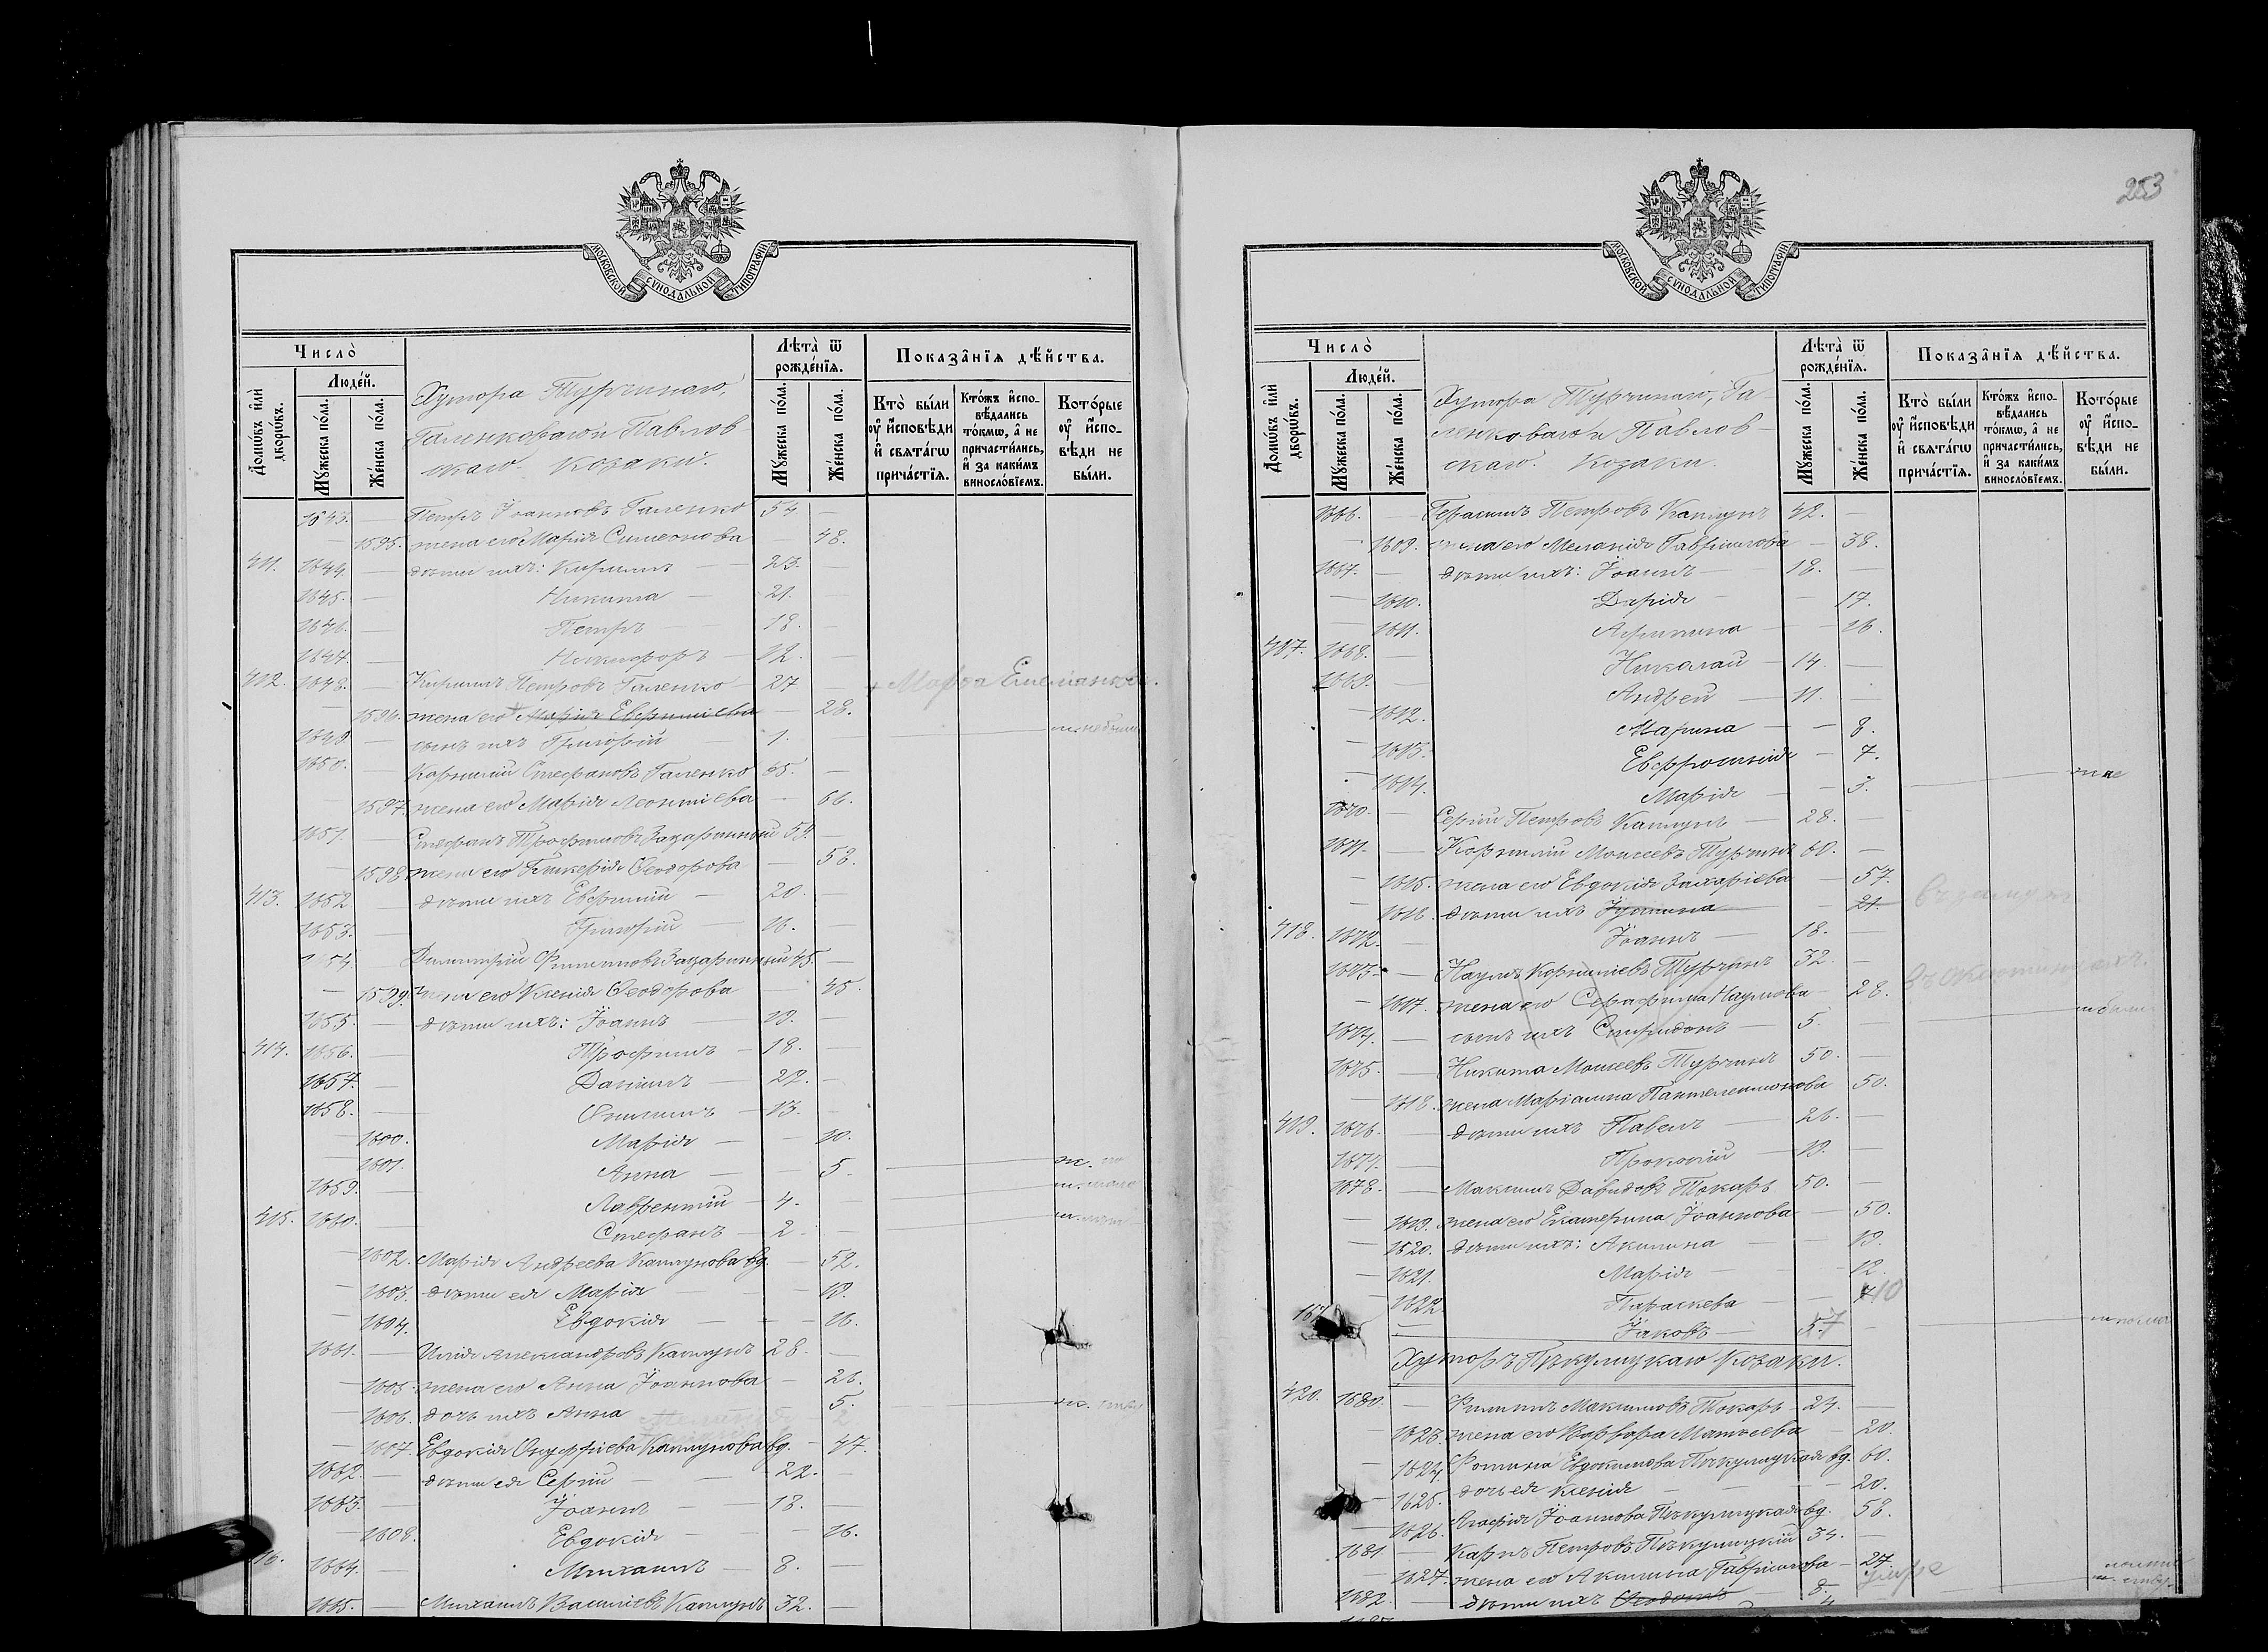 МОСКОВСКОЙ СѴНОДАЛЬНОЙ ТИПОГРАФІИ
Число̀
Люде́й.
Домѡ́въ и҆лѝ дворѡ́въ.
Мꙋ́жеска по́ла.
Же́нска по́ла.
Хутора Турчинаго,
Галенковаго и Павлов
скаго. Козаки.
Лѣта̀ ѿ рожде́нїѧ.
Мꙋ́жеска по́ла.
Же́нска по́ла.
Показа̑нїѧ дѣ́йства.
Кто̀ бы́ли ᲂу҆ и҆сповѣди и҆ свѧта́гѡ прича́стїѧ.
Кто́жъ и҆сповѣдались то́кмѡ, а҆ не причасти́лись, и҆ за каки́мъ винослѡ́вїемъ.
Кото́рые ᲂу҆ и҆сповѣди не бы́ли.
1643. — Петръ Іоанновъ Галенко 54 —
— 1595. жена его Марія Симеонова — 48.
411. 1644. — дѣти ихъ: Кириллъ — 23. —
1645. — Никита — 21. —
1646. — Петръ — 18. —
1647. — Никифоръ — 12. —
412. 1648. — Кириллъ Петровъ Галенко — 27 —
— 1596. жена его Марія — 28.
1649 — сынъ ихъ Григорій — 1. —
1650. — Корнилій Стефановъ Галенко 65. —
— 1597. жена его Марія Леонтіева — 66.
1651. — Стефанъ Трофимовъ 59. —
— 1598. жена его Гликерія Ѳеодорова — 58.
413. 1652 — дѣти ихъ Евфимій — 20. —
1653. — Григорій — 16. —
1 54. Димитрій Филипповъ 45. —
— 1599. жена его Ксенія Ѳеодорова — 45.
1655. — дѣти ихъ: Іоаннъ — 19. —
414. 1656. — Трофимъ — 18. —
1657. — Даніилъ — 22. —
1658. — Филиппъ — 13. —
— 1600. Марія — — 10.
— 1601. Анна — — 5.
1659. — Лаврентій — 4. —
415. 1660. — Стефанъ — 2. —
— 1602. Марія Андреева Каплунова вд. — 52.
— 1603. дѣти ея Марія — 19.
— 1604. Евдокія — — 16.
1661. — Илія Александровъ Каплунъ 28. —
— 1605. жена его Анна Іоаннова — 26.
— 1606. дочь ихъ Анна 5.
— 1607. Евдокія Онуфріева Каплунова вд. — 47.
1662. — дѣти ея Сергій — 22. —
1663. — Іоаннъ — 18. —
— 1608. Евдокія — — 16.
16. 1664. — Михаилъ — 8. —
1665. — Михаилъ Василіевъ Каплунъ 32. —
253
МОСКОВСКОЙ СѴНОДАЛЬНОЙ ТИПОГРАФІИ
Число̀
Люде́й.
Домѡ́въ и҆лѝ дворѡ́въ.
Мꙋ́жеска по́ла.
Же́нска по́ла.
Хутора Турчинаго, Га-
ленковаго и Павлов-
скаго. Козаки.
Лѣта̀ ѿ рожде́нїѧ.
Мꙋ́жеска по́ла.
Же́нска по́ла.
Показа̑нїѧ дѣ́йства.
Кто̀ бы́ли ᲂу҆ и҆сповѣди и҆ свѧта́гѡ прича́стїѧ.
Кто́жъ и҆сповѣдались то́кмѡ, а҆ не причасти́лись, и҆ за каки́мъ винослѡ́вїемъ.
Кото́рые ᲂу҆ и҆сповѣди не бы́ли.
1666. — Герасимъ Петровъ Каплунъ 42. —
— 1609. жена его Меланія Гавриилова — 38.
1667. — дѣти ихъ: Іоаннъ — 18. —
— 1610. Дарія — — 17.
— 1611. — 16.
417. 1668. — Николай — 14. —
1669. — Андрей — 11. —
— 1612. Марина — — 8.
— 1613. Евфросинія — 7.
— 1614. Марія — — 3.
1670. — Сергій Петровъ Каплунъ — 28. —
1671. — Корнилій Моисеевъ Турчинъ 60. —
— 1615. жена его Евдокія Захаріева — 57.
— 1616. дѣти ихъ Іустина — 21.
418. 1672. — Іоаннъ — 18. —
1673. — Наумъ Корниліевъ Турчинъ 32. —
— 1617. жена его Серафима Наумова — 28.
1674. — сынъ ихъ Спиридонъ — 5. —
1675. — Никита Моисеевъ Турчинъ 50. —
— 1618. жена Маріанна Пантелеимонова 50.
419. 1676. — дѣти ихъ Павелъ — 26. —
1677. — Прокопій — 19. —
1678. — Максимъ Давидовъ Токарь 50. —
— 1619. жена его Екатерина Іоаннова — 50.
— 1620. дѣти ихъ: Акилина — — 19.
— 1621. Марія — — 12.
— 1622. Параскева — — 10
Іаковъ — 7 —
Хуторъ Пѣкулицкаго Козаки.
420. 1680. — Филиппъ Максимовъ Токарь — 24. —
1623. жена его Варвара Матѳеева — 20.
— 1624. Фотинія Евдокимова Пѣкулицкая вд. 60.
— 1625. дочь ея Ксенія — — 20.
— 1626. Агафія Іоаннова Пѣкулицкая вд. 58.
1681 — Карпъ Петровъ Пѣкулицкій 34. —
— 1627. жена его Акилина Гавриилова — 27.
1682. — дѣти ихъ 8.